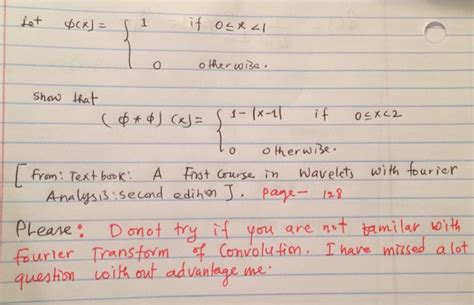 Let ϕ(x) = { 1 if 0≤x<1
0 otherwise.
Show that
(ϕ * ϕ)(x) = { 1-|x-1| if 0≤x<2
0 otherwise.
[From: Textbook: A First Course in Wavelets with fourier
Analysis: second edition]. Page- 128
PLease: Donot try if you are not familar with
fourier Transform of Convolution. I have missed a lot
question with out advantage me.